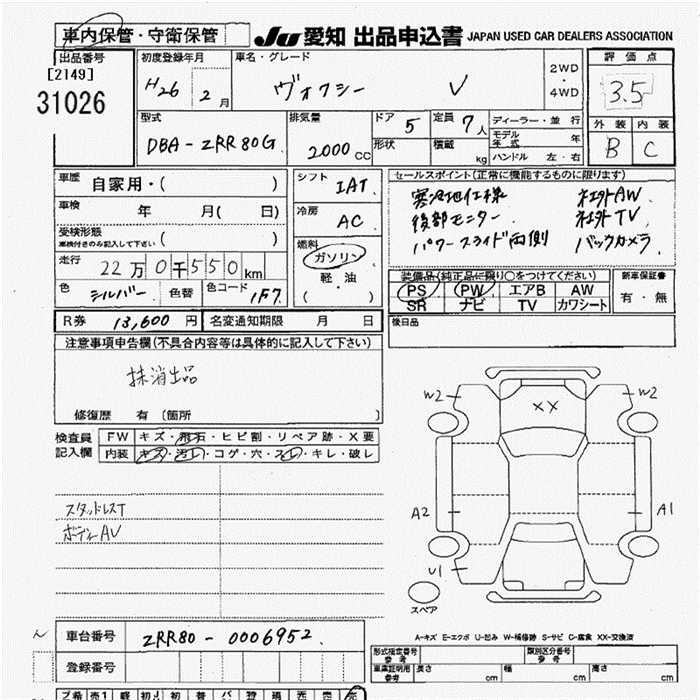 車内保管・守衛保管 JU 愛知 出品申込書 JAPAN USED CAR DEALERS ASSOCIATION
出品番号
[2149]
31026
初度登録年月
H26 2月
車名・グレード
ヴォクシー V
2WD
・
4WD
評価点
3.5
型式
DBA-ZRR80G
排気量
2000 cc
ドア 5
形状
定員 7人
積載 kg
ディーラー・並行
モデル年式 年
ハンドル 左・右
外装 内装
B C
車歴 自家用・( )
車検 年 月( 日)
受検形態
車検付きのみ記入して下さい ( )
走行 22万0千550km
色 シルバー 色替 色コード 1F7
シフト IAT
冷房 AC
燃料
ガソリン
軽油
( )
セールスポイント(正常に機能するものに限ります)
寒冷地仕様 社外AW
後部モニター 社外TV
パワースライド両側 バックカメラ
装備品(純正品に限り○をつけてください)
PS PW エアB AW
SR ナビ TV カワシート
新車保証書
有・無
R券 13,600円 名変通知期限 月 日
後日品
注意事項申告欄(不具合内容等は具体的に記入して下さい)
抹消出品
修復歴 有 〔箇所 〕
検査員
記入欄
FW キズ・飛石・ヒビ割・リペア跡・X要
内装 キズ・汚レ・コゲ・穴・スレ・キレ・破レ
スタッドレスT
ボディAV
W2 XX W2
A2 A1
U1
スペア
A-キズ E-エクボ U-凹み W-補修跡 S-サビ C-腐食 XX-交換済
車台番号 ZRR80-0006952
登録番号
形式指定番号
参考
類別区分番号
参考
車庫証明用
参考
長さ cm 幅 cm 高さ cm